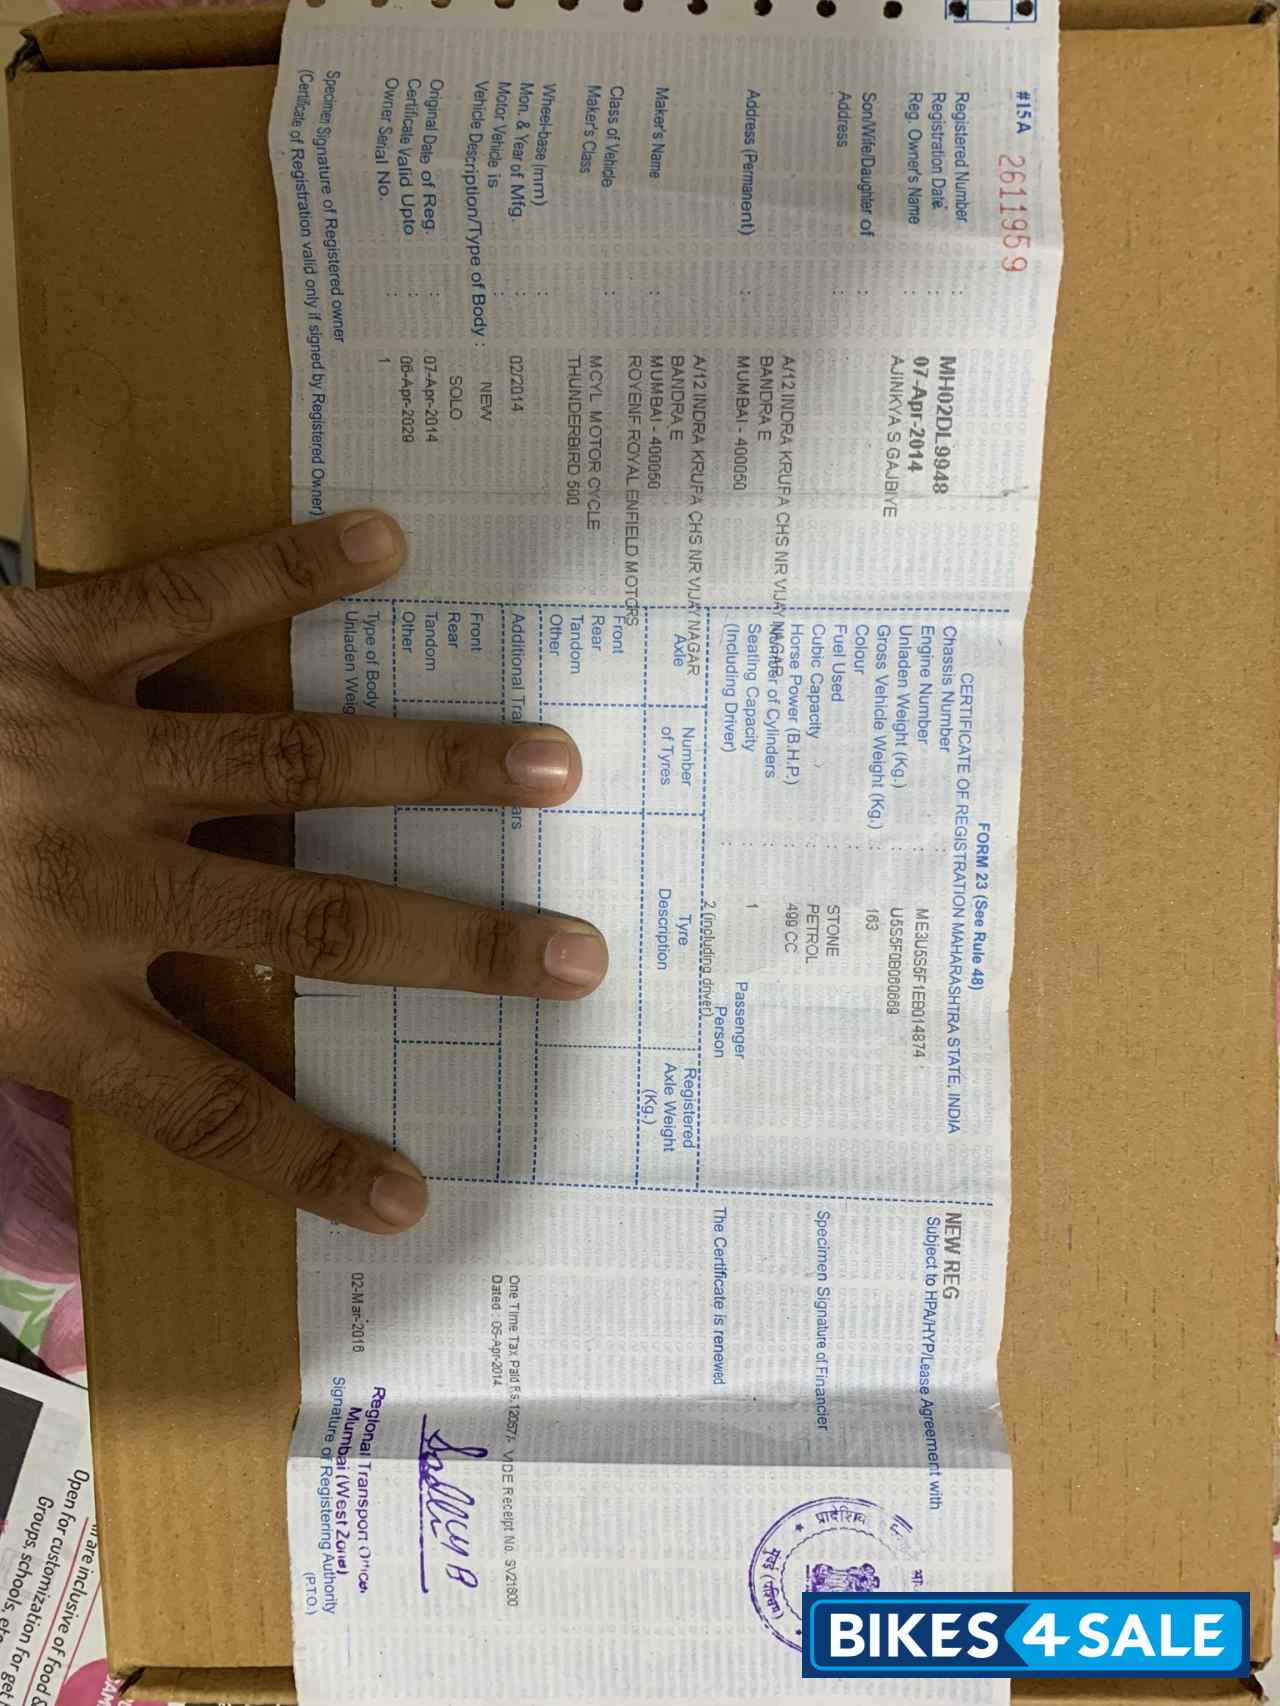 #15A 2611959
Registered Number : MH02DL9948
Registration Date : 07-Apr-2014
Reg. Owner's Name : AJINKYA S GAJBIYE
Son/Wife/Daughter of :
Address : A/12 INDRA KRUPA CHS NR VIJAY NAGAR
BANDRA E
MUMBAI - 400050
Address (Permanent) : A/12 INDRA KRUPA CHS NR VIJAY NAGAR
BANDRA E
MUMBAI - 400050
Maker's Name : ROYENF ROYAL ENFIELD MOTORS
Class of Vehicle : MCYL MOTOR CYCLE
Maker's Class THUNDERBIRD 500
Wheel-base (mm) :
Mon. & Year of Mfg. : 02/2014
Motor Vehicle is : NEW
Vehicle Description/Type of Body : SOLO
Original Date of Reg. : 07-Apr-2014
Certificate Valid Upto : 06-Apr-2029
Owner Serial No. : 1
Specimen Signature of Registered owner
(Certificate of Registration valid only if signed by Registered Owner)
FORM 23 (See Rule 48)
CERTIFICATE OF REGISTRATION MAHARASHTRA STATE, INDIA
Chassis Number : ME3U5S5F1EB014874
Engine Number : U5S5F0B060669
Unladen Weight (Kg.) : 163
Gross Vehicle Weight (Kg.) :
Colour : STONE
Fuel Used : PETROL
Cubic Capacity : 499 CC
Horse Power (B.H.P.) :
Number of Cylinders : 1
Seating Capacity : Passenger
(Including Driver) : 2 (including driver) Person
Axle
Number of Tyres
Tyre Description
Registered Axle Weight (Kg.)
Front
Rear
Tandom
Other
Additional
Front
Rear
Tandom
Other
Type of Body
Unladen
NEW REG
Subject to HPA/HYP/Lease Agreement with
Specimen Signature of Financier
The Certificate is renewed
One Time Tax Paid Rs.12067/- VIDE Receipt No. SV21600
Dated : 05-Apr-2014
02-Mar-2016
Regional Transport Office,
Mumbai (West Zone)
Signature of Registering Authority
(P.T.O.)
प्रादेशिक
मुंबई (पश्चिम)
BIKES4SALE
are inclusive of food &
Open for customization for get
Groups, schools,